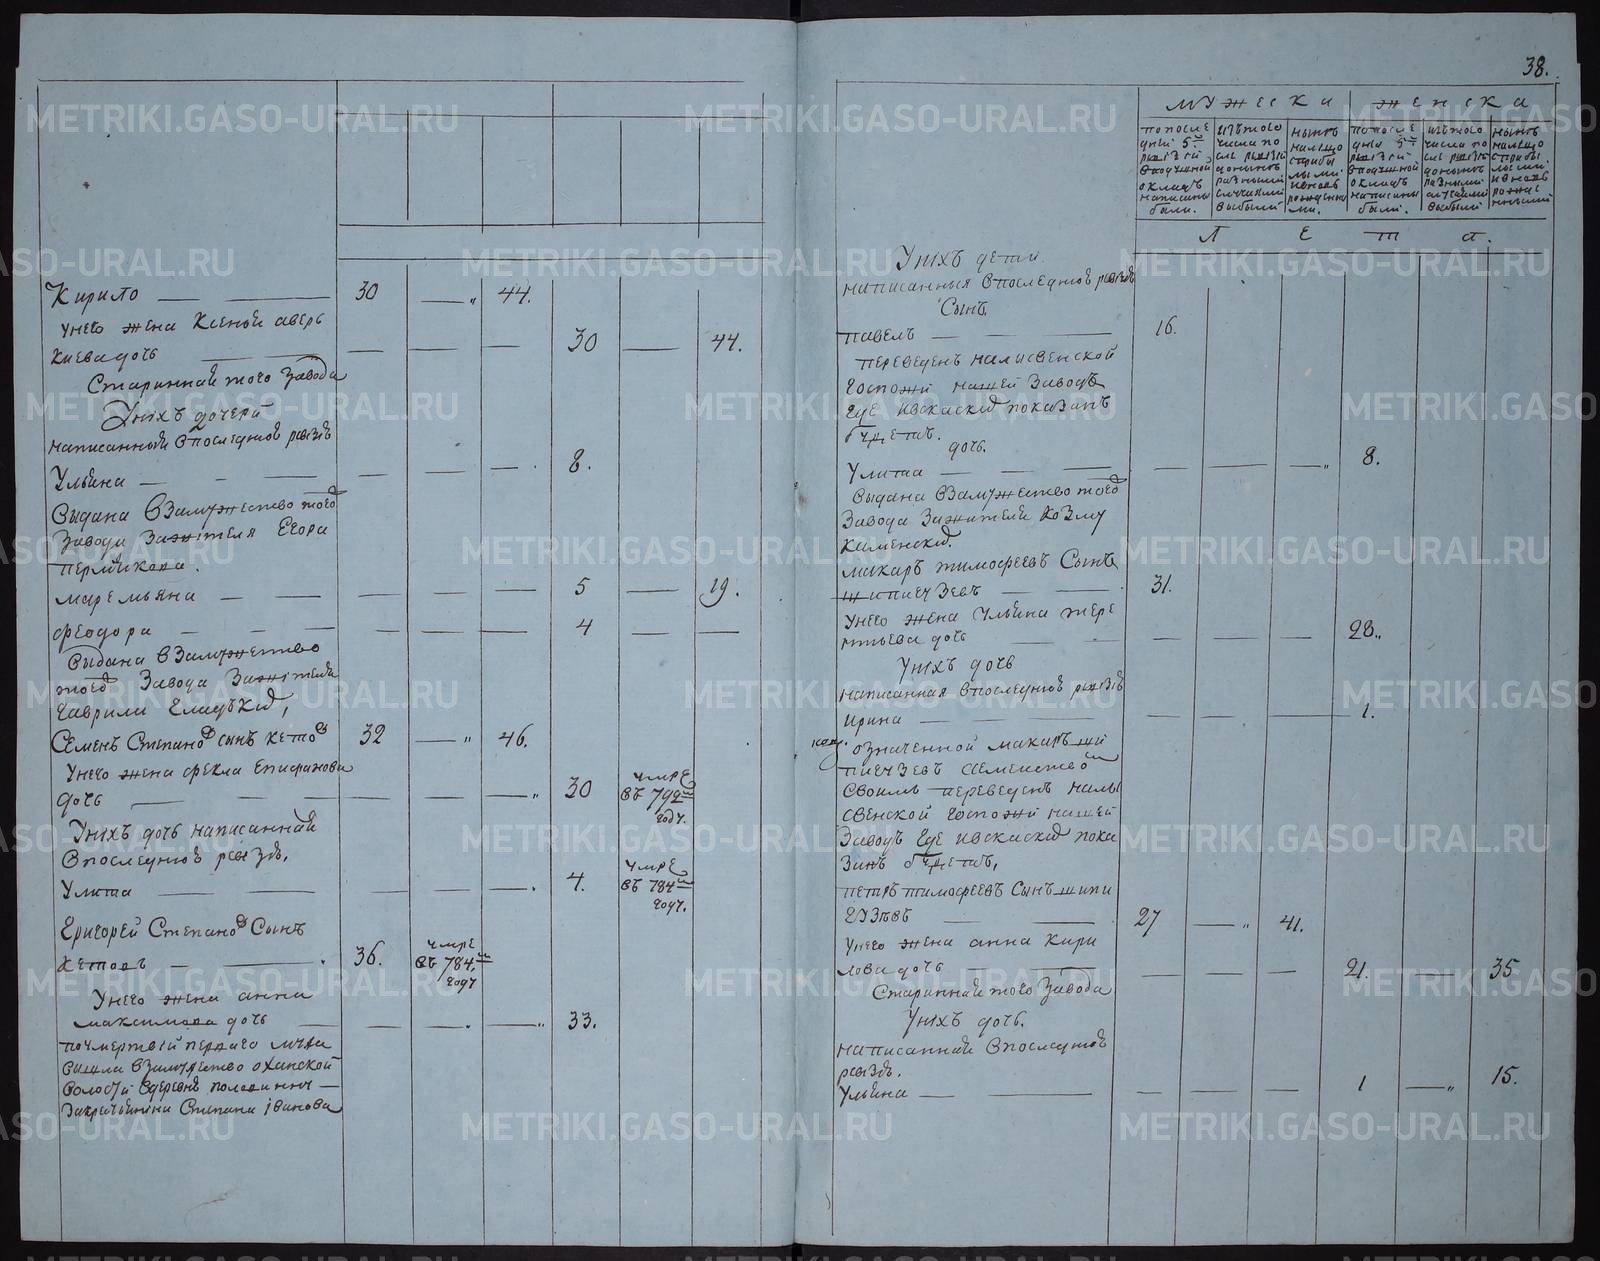 Кирило 30 44.
унего жена Ксенья аверь
киева дочь 30 44.
Стариннай того завода
Унихъ дочери
написанныя впоследнюю ревизию
Ульяна 8.
выдана взамужество того
завода зажителя Егора
пермякова.
маремьяна 5 19.
феодора 4
выдана взамужество
того завода зажителя
гаврила
Семенъ Степановъ сынъ кетовъ 32 46.
унего жена фекла Епифанова
дочь 30 умре въ 792м году.
Унихъ дочь написанная
впоследнюю ревизию.
Улита 4. умре въ 784м году.
Григорей Степановъ Сынъ
кетовъ 36. умре въ 784м году
Унего жена анна
максимова дочь 33.
посмертвии первого мужа
вышла взамужество оханской
волости вдеревню половинную
закрестьянина Степана iванова
38.
мужеска женска
попоследней 5й ревизии вподушной окладъ написаны были.
изътого числа после ревизии доныне разными случаями выбыли
ныне налицо сприбылыми ивновь рожденными.
попоследней 5й ревизии вподушной окладъ написаны были.
изътого числа после ревизии доныне разными случаями выбыли
ныне налицо сприбылыми ивновь рожденными
Лета.
Унихъ дети
написанныя впоследнюю ревизию
Сынъ
павелъ 16.
переведенъ налысвенской
госпожи нашей заводъ
где ивсказке показанъ
будетъ.
дочь.
Улита 8.
выдана взамужество того
завода зажителя козму
каменских.
макаръ тимофеевъ Сынъ
шипигузевъ 31.
унего жена Ульяна тере
нтьева дочь 28.
Унихъ дочь
написанная впоследнюю ревизию
ирина 1.
означенной макаръ ши
пигузевъ семействомъ
своимъ переведенъ налы
свенской госпожи нашей
заводъ где ивсказке пока
занъ будетъ,
петръ тимофеевъ Сынъ шипи
гузевъ 27 41.
унего жена анна кири
лова дочь 21. 35
Стариннай того завода
Унихъ дочь.
написанная впоследнюю
ревизию.
Ульяна 1 15.